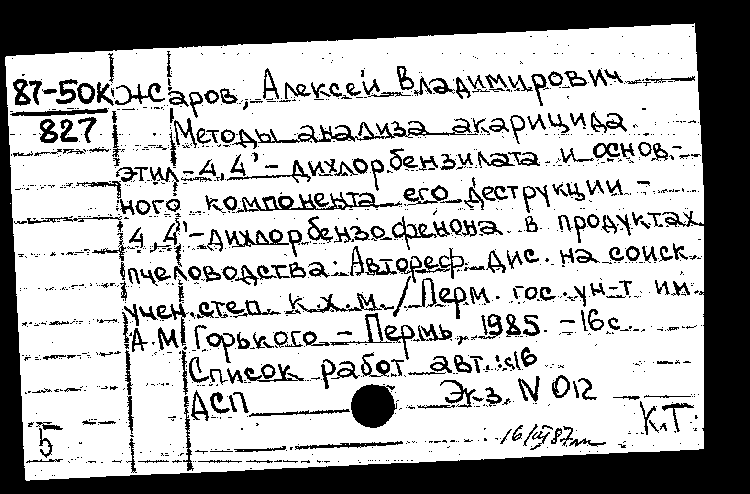 87-50К Жаров, Алексей Владимирович
827 Методы анализа акарицида
этил-4,4'-дихлорбензилата и основ-
ного компонента его деструкции -
4,4'-дихлорбензофенона в продуктах
пчеловодства: Автореф. дис. на соиск
учен. степ. к.х.м. / Перм. гос. ун-т им
А.М Горького - Пермь, 1985. - 16с
Список работ авт.: с16
АСП Экз. N 012
5 К.Т.